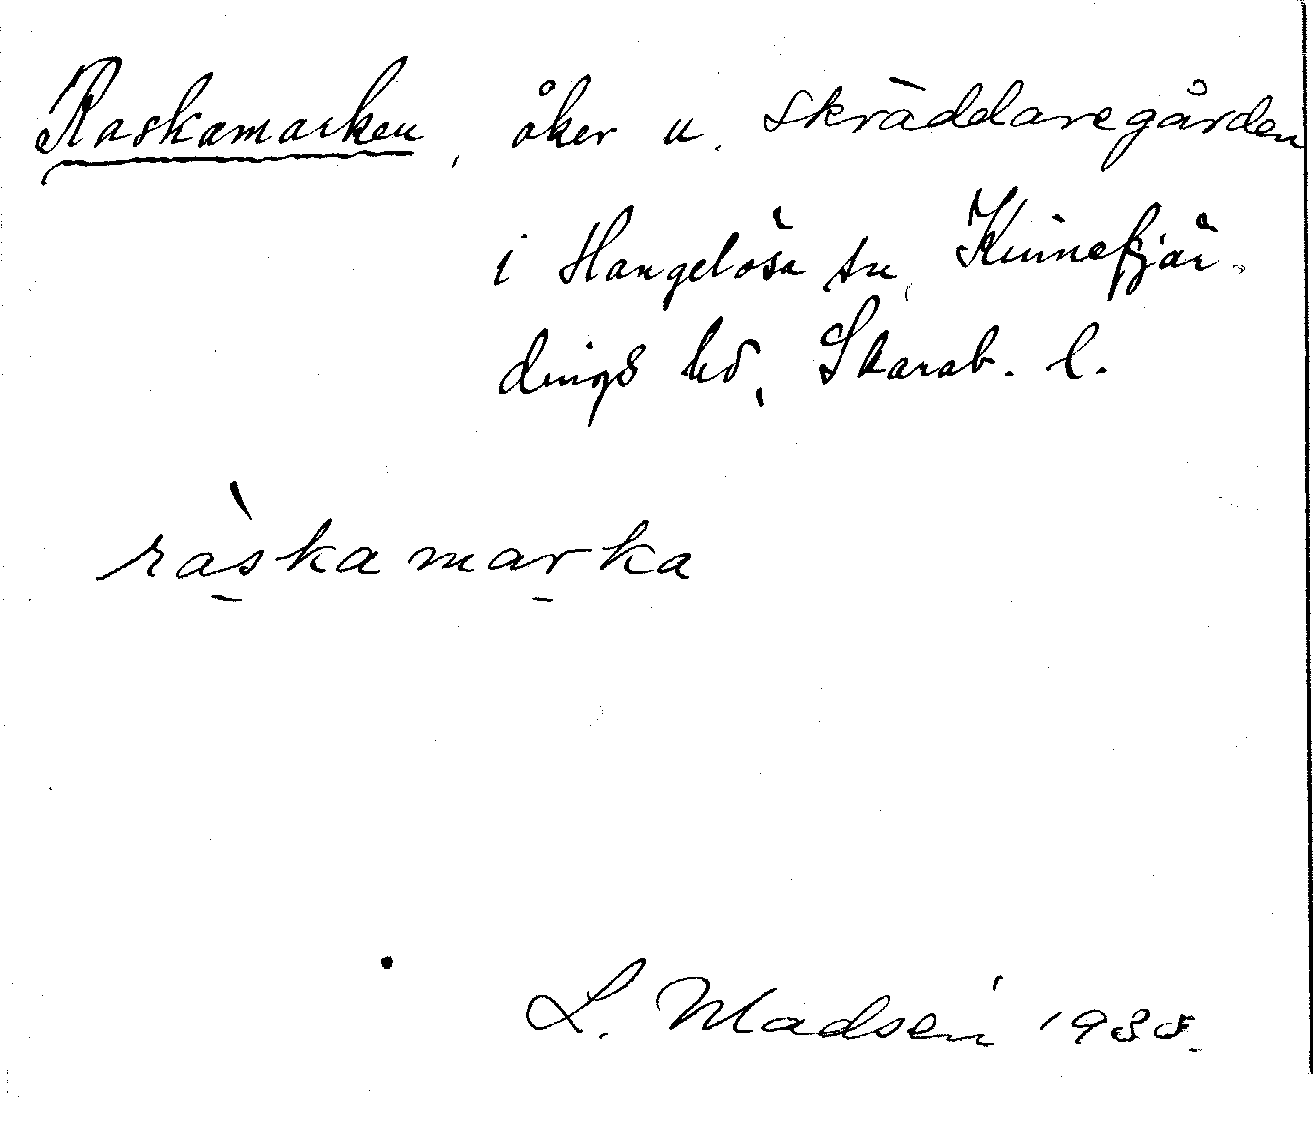 Raskamarken, åker u. Skräddaregården
i Hangelösa sn, Kinnefjär-
dings hd, Skarab. l.
ràskamarka
L. Madsén